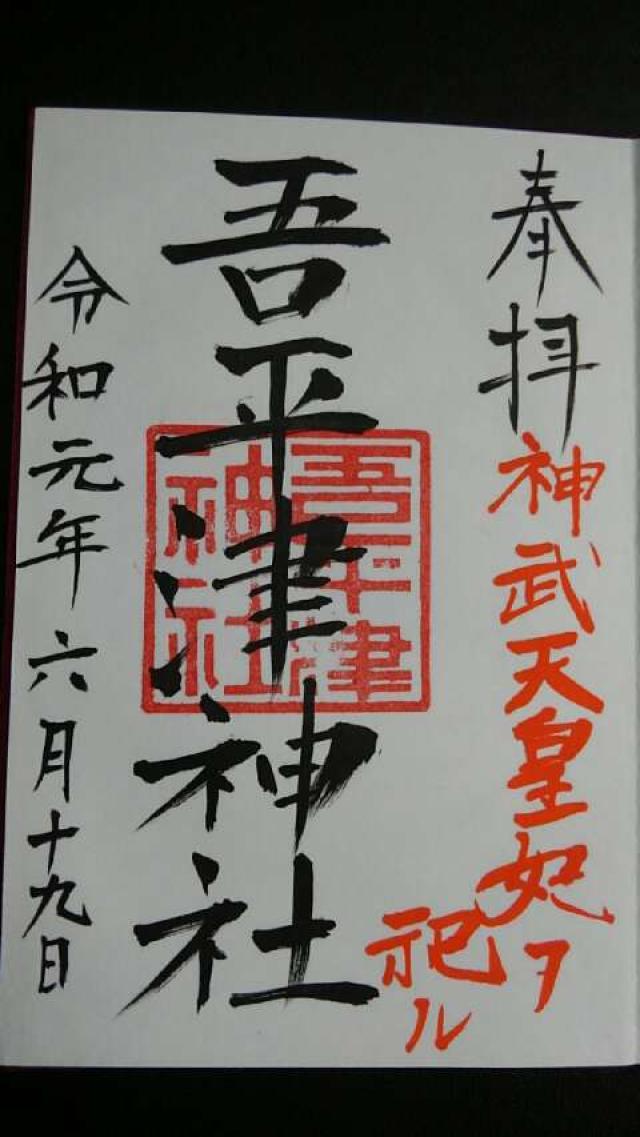 奉拝
神武天皇妃ヲ
祀ル
吾平津神社
吾平津
神社
令和元年六月十九日